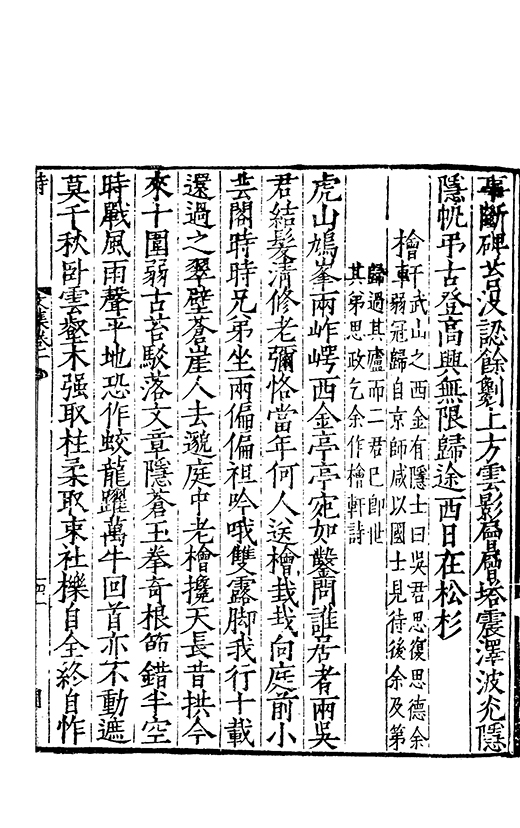 事斷碑苔没認餘劖上方雲影層層塔震澤波光隱
隱帆弔古登高興無限歸途西日在松杉
檜軒
武山之西金有隱士曰吳君思復思德余
弱冠歸自京師咸以國士見待後余及第
歸過其廬而二君已卽世
其弟思政乞余作檜軒詩
虎山鳩峯兩岝崿西金亭亭宛如鑿問誰居者兩吳
君結髮清修老彌恪當年何人送檜栽栽向庭前小
芸閣時時兄弟坐兩偏偏袒吟哦雙露脚我行十載
還過之翠壁蒼崖人去邈庭中老檜攙天長昔拱今
來十圍弱古苔駁落文章隱蒼玉拳奇根節錯半空
時戰風雨聲平地恐作蛟龍躍萬牛回首亦不動遮
莫千秋卧雲壑木强取柱柔取束社櫟自全終自怍
詩
文集卷二